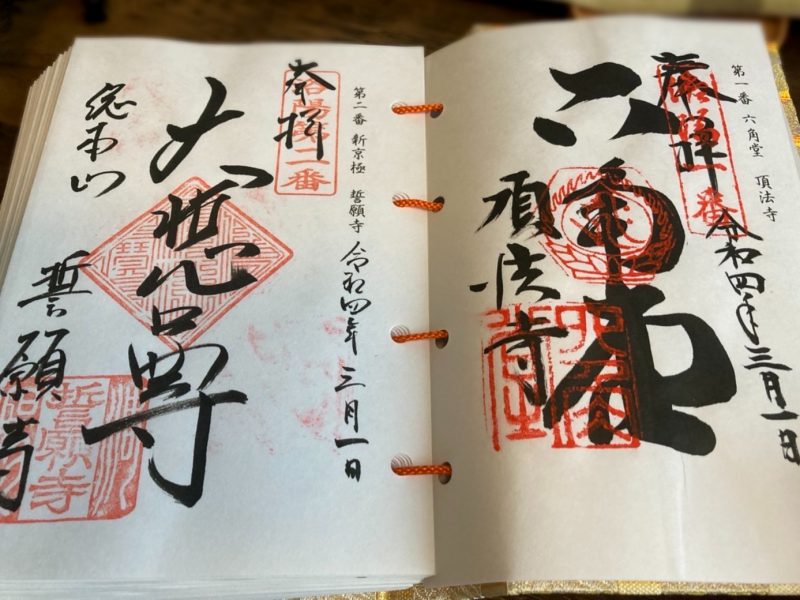 第一番 六角堂 頂法寺
奉拝
洛陽第一番
令和四年三月一日
六角堂
頂法寺
第二番 新京極 誓願寺
奉拝
洛陽第二番
令和四年三月一日
総本山
誓願寺
誓願寺